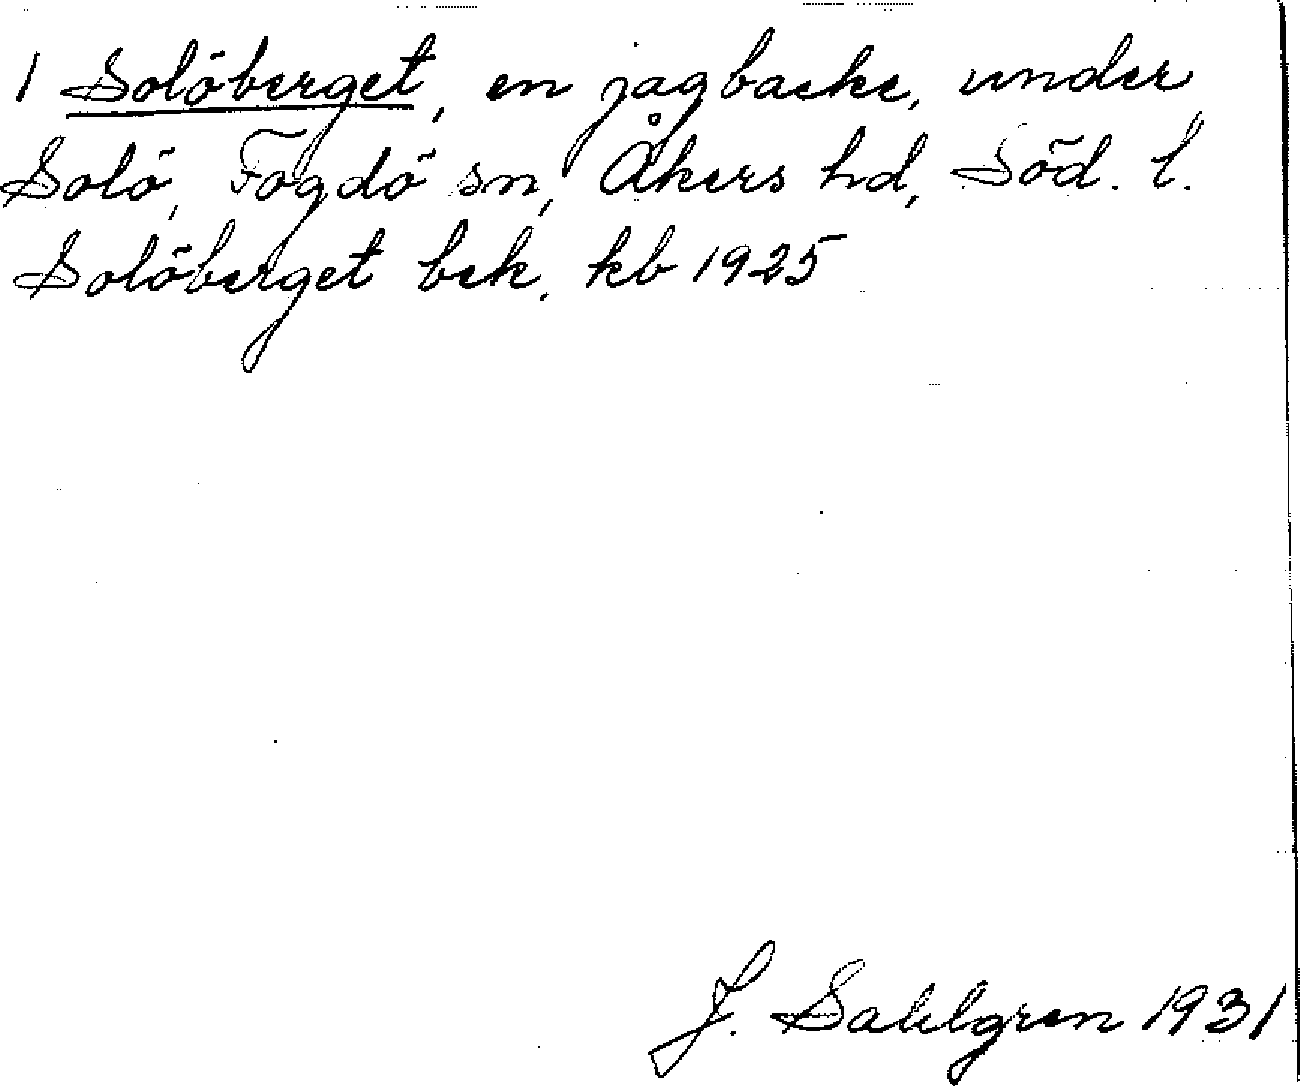 1 Solöberget, en jagbacke, under
Solö, Fogdö sn, Åkers hd, Söd. l.
Solöberget bek. kb 1925
J. Sahlgren 1931